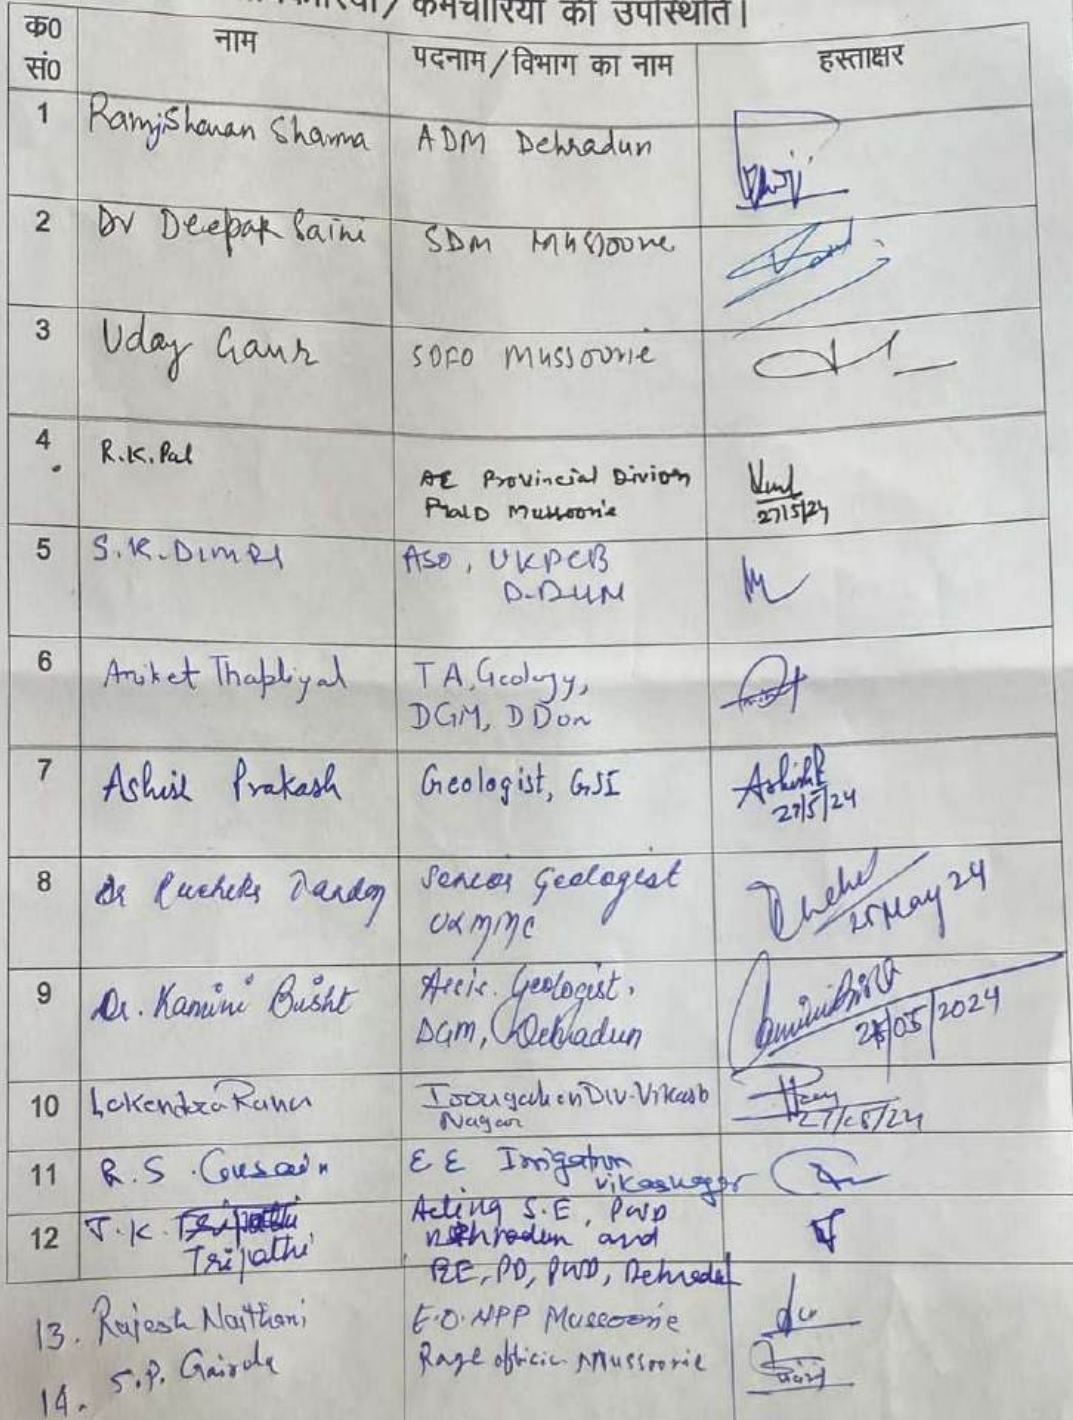 कर्मचारियों की उपस्थिति।
क0 सं0 नाम पदनाम/विभाग का नाम हस्ताक्षर
1 Ramji Sharan Sharma ADM Dehradun
2 Dr Deepak Saini SDM Mussoorie
3 Uday Gaur SDFO Mussoorie
4 R.K. Pal AE Provincial Division
PWD Mussoorie
27/5/24
5 S.K. DIMRI ASO, UKPCB
D-DUN
6 Aniket Thapliyal TA, Geology,
DGM, DDon
7 Ashish Prakash Geologist, GSI Ashish
27/5/24
8 Dr Ruchika Tandon Senior Geologist
UKMMC
May 24
9 Dr. Kamini Bisht Geologist,
DGM, Dehradun
/05/2024
10 Lokendra Rana Div-Vikash
Nagar
27/05/24
11 R.S. Gusain EE Irrigation
Vikasnagar
12 J.K. Tripathi Acting S.E, PWD
Tripathi Dehradun and
EE, PD, PWD, Dehradun
13. Rajesh Naithani E.O. NPP Mussoorie
14. S.P. Gairola Rage officer Mussoorie